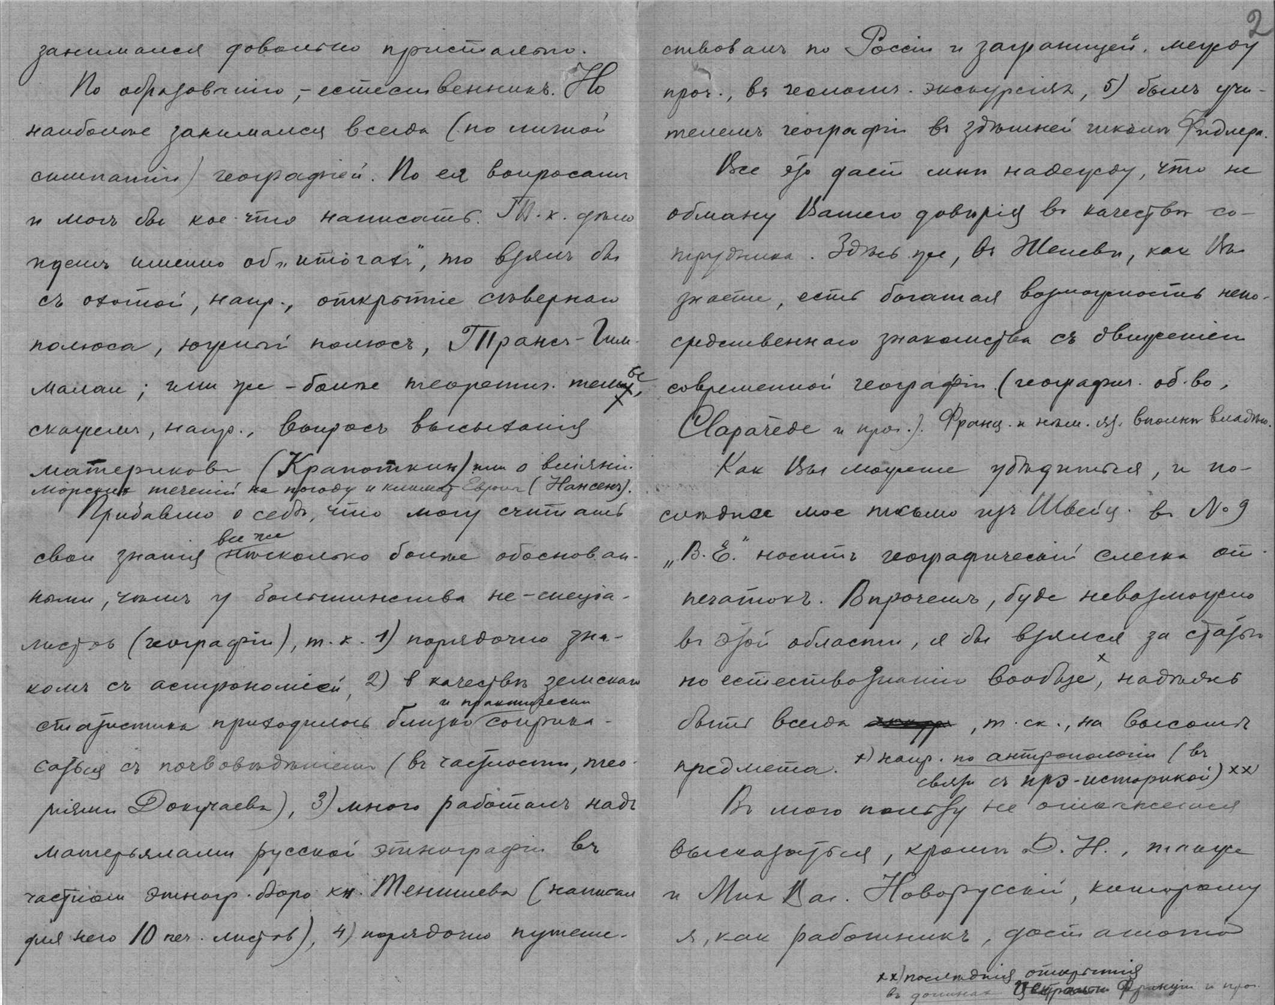 занимался довольно пристально.
По образованію, – естественникъ. Но
наиболѣе занимался всегда (по личной
симпатіи) географіей. По ея вопросамъ
и могъ бы кое-что написать. Т. к. дѣло
идетъ именно объ „итогахъ", то взялъ бы
съ охотой, напр., открытіе сѣвернаго
полюса, южный полюсъ, Трансъ-Гим-
малаи; или же – болѣе теоретич. темы,
скажемъ, напр., вопросъ высыханія
материковъ (Крапоткинъ) или о вліяніи
морскихъ теченій на погоду и климат Европы (Нансенъ).
Прибавлю о себѣ, что могу считать
все же
свои знанія нѣсколько болѣе обоснован-
ными, чѣмъ у большинства не-спеціа-
листовъ (географіи), т. к. 1) порядочно зна-
комъ съ астрономіей, 2) въ качествѣ земскаго
и практически
статистика приходилось близко соприка-
саться съ почвовѣдѣніемъ (въ частности, тео-
ріями Докучаева), 3) много работалъ надъ
матерьялами русской этнографіи въ
частномъ этногр. бюро кн. Тенишева (написалъ
для него 10 печ. листовъ), 4) порядочно путеше-
2
ствовалъ по Россіи и заграницей, между
проч., въ геологич. экскурсіяхъ, 5) былъ учи-
телемъ географіи въ здѣшней школѣ Фидлера.
Все это даетъ мнѣ надежду, что не
обману Вашего довѣрія въ качествѣ со-
трудника. Здѣсь же, въ Женевѣ, какъ Вы
знаете, есть богатая возможность непо-
средственнаго знакомства съ движеніемъ
современной географіи (географич. об-во,
Claparède и проч.). Франц. и нѣм. яз. вполнѣ владѣю.
Какъ Вы можете убѣдиться, и по-
слѣднее мое письмо изъ Швейц. въ № 9
„В. Е." носитъ географическій слегка от-
печатокъ. Впрочемъ, буде невозможно
въ этой области, я бы взялся за статью
по естествознанію вообще x, надѣясь
быть всегда , т. ск., на высотѣ
предмета. x) напр. по антропологіи (въ
связи съ прэ-историкой) xx)
Въ мою пользу не откажется
высказаться, кромѣ Д. Н., также
и Мих. Вас. Новорусскій, которому
я, какъ работникъ, достаточно
xx) послѣднія открытія
въ долинахъ Франціи и проч.